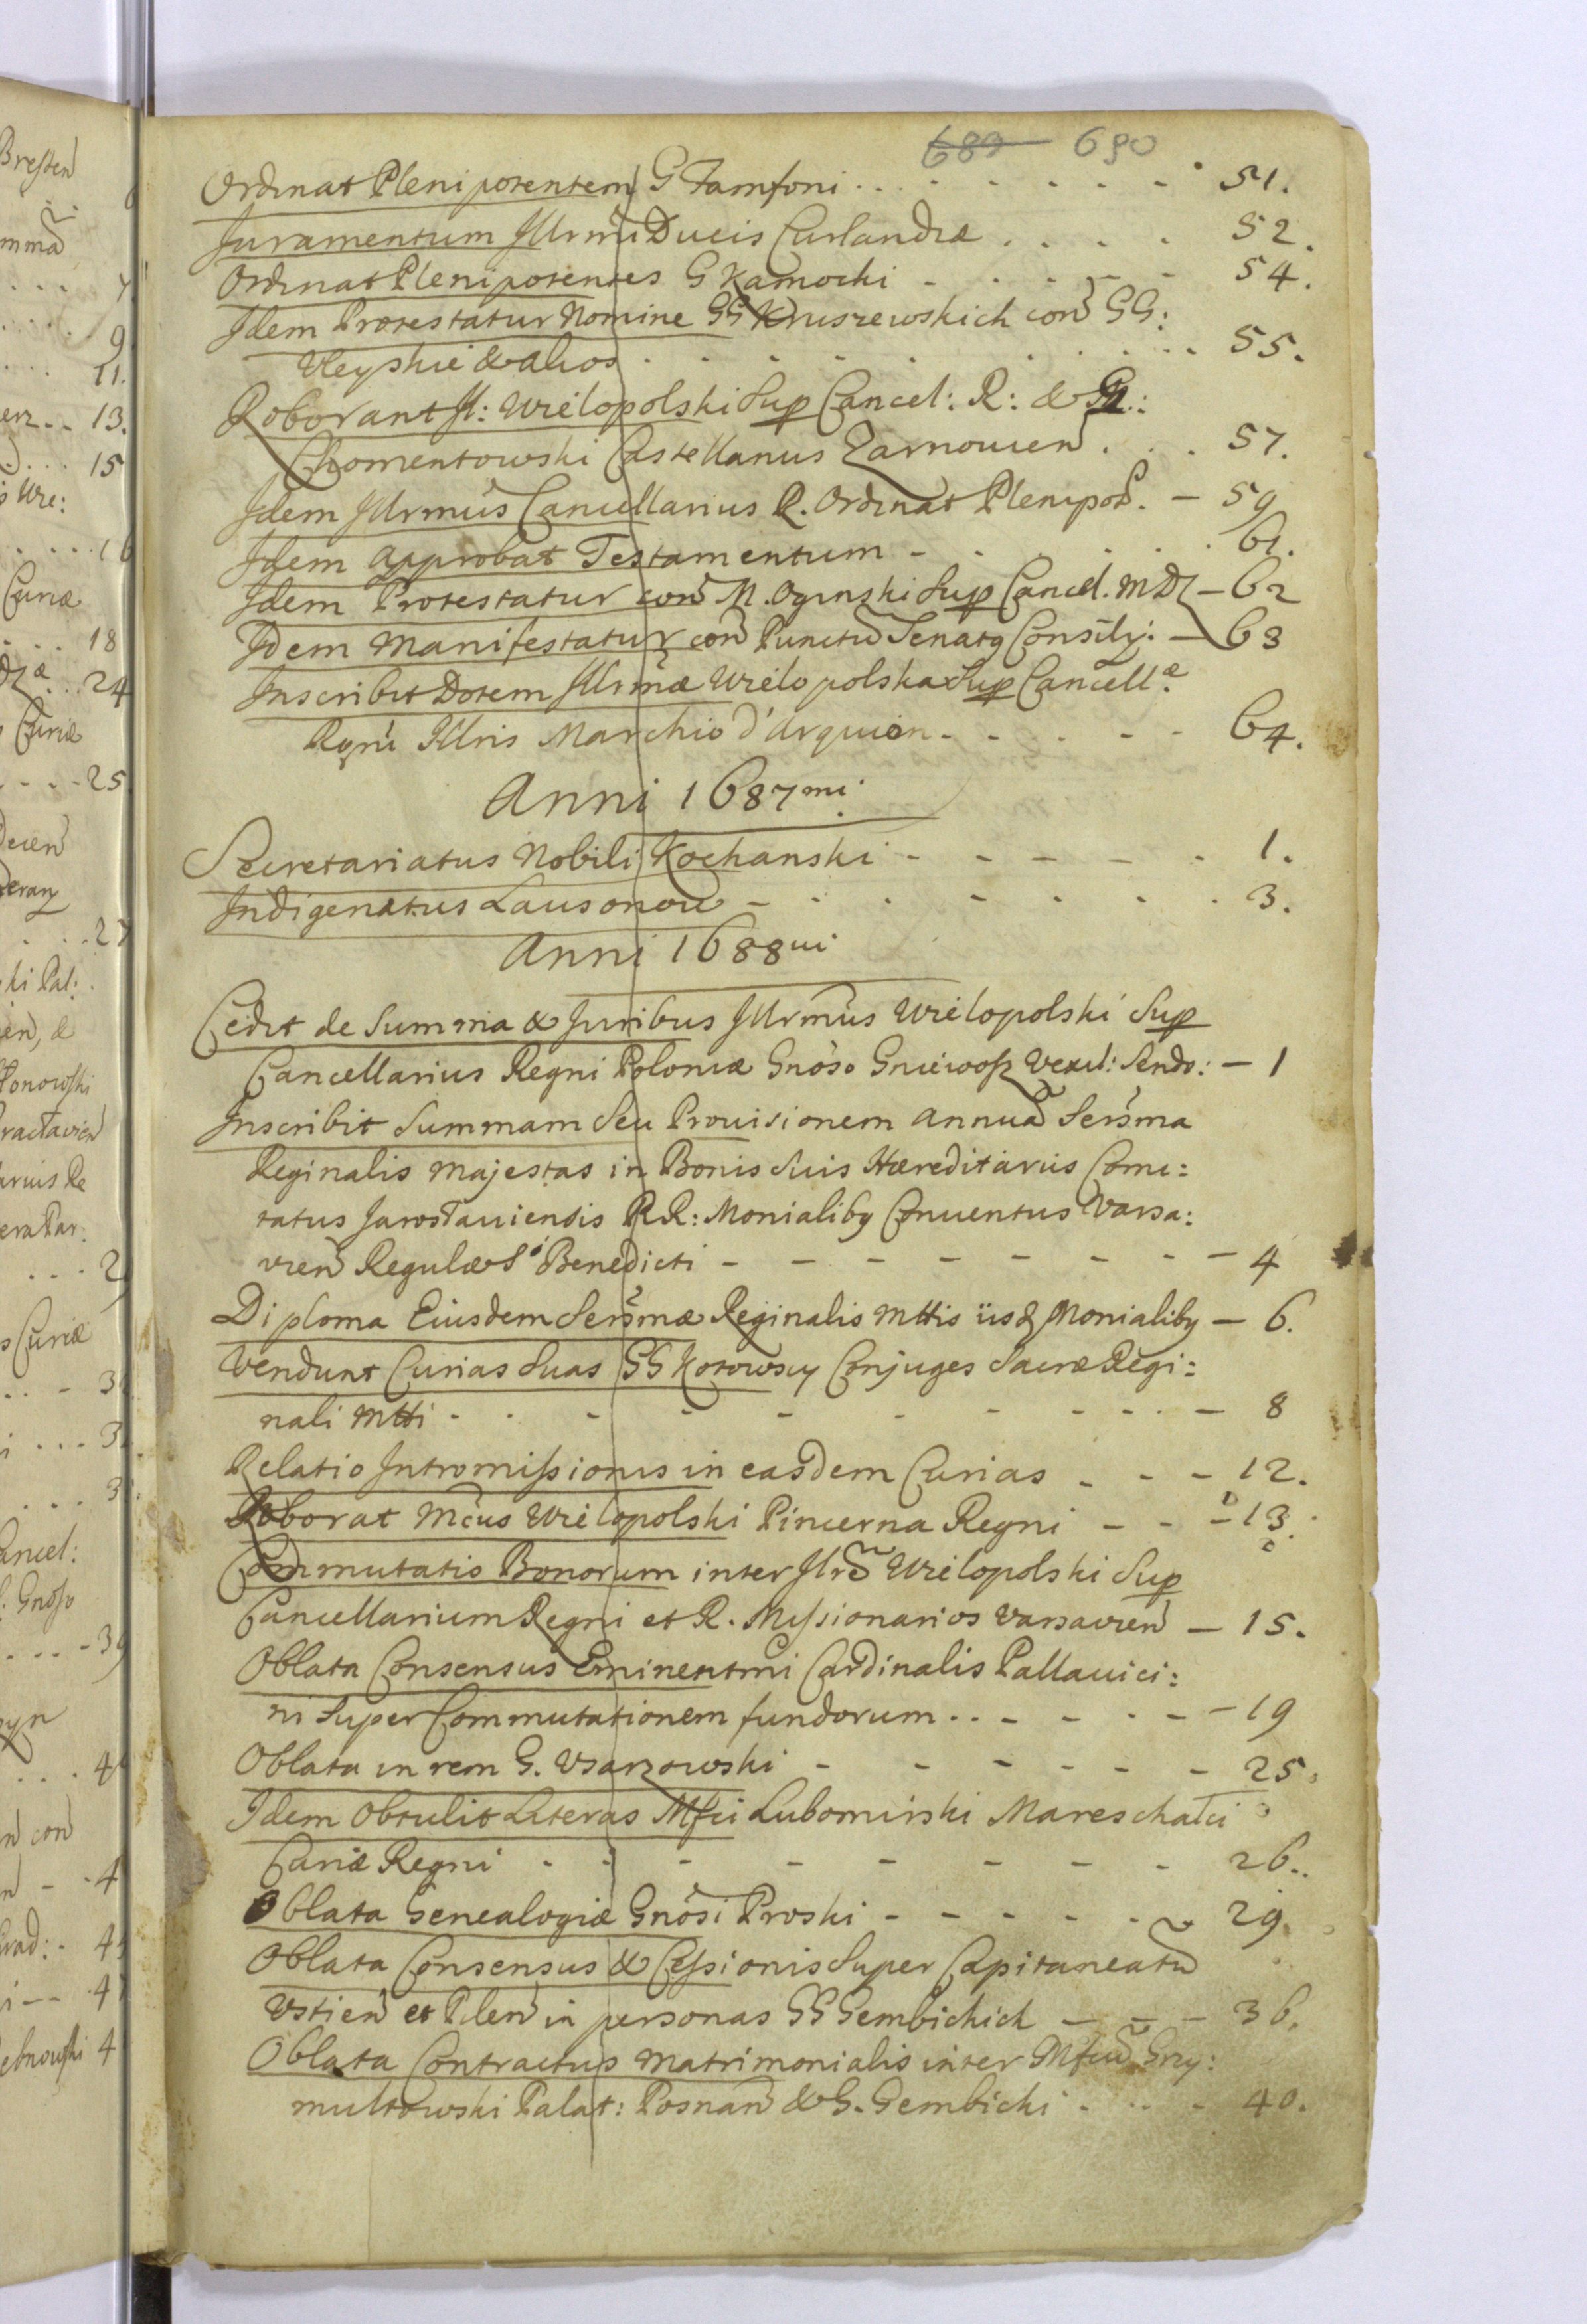 689 690
Ordinat Plenipotentem G Tamfoni . . . . . . . . 51.
Juramentum Illrmi Ducis Curlandiæ . . . . 52.
Ordinat Plenipotentes G Kamocki - . . . - - 54.
Idem Protestatur Nomine GG Kruszewskich con GG:
Uleyskie & alios . . . . . . . . . . 55.
Roborant Il: Wielopolski Sup Cancel: R: & G.:
Chomentowski Castellanus Zarnovien . . . 57.
Idem Illrmus Cancellarius R. Ordinat Plenipot. - 59
Idem Approbat Testamentum - . . . . . 61.
Idem Protestatur con M. Oginski Sup Cancel. MDL - 62
Idem Manifestatur con Punctu Senatq Consilij: - 63
Inscribit Dotem Illrmæ Wielopolska Sup Cancellæ
Regni Illris Marchio d'Arquien - - . . - - 64.
Anni 1687mi
Secretariatus Nobili Kochanski - - - - - . 1.
Indigenatus Lausonou - . . - . . . 3.
Anni 1688ui
Cedit de Summa & Juribus Illrmus Wielopolski Sup
Cancellarius Regni Poloniæ Gnoso Gniewosz Vexil: Sendo: - 1
Inscribit Summam Seu Prouisionem annua Sersma
Reginalis Majestas in Bonis Suis Hæreditariis Comi:
tatus Jarosłauiensis RR: Monialibq Conuentus Varsa:
vien Regulæ S. Benedicti - - - - - - - - 4
Diploma Eiusdem Sersmæ Reginalis Mttis iisd Monialibq - 6.
Vendunt Curias Suas GG Kotowscy Conjuges Sacræ Regi:
nali Mtti - . - - - - - - - . . - 8
Relatio Intromissionis in easdem Curias - - - 12.
Roborat Mcus Wielopolski Pincerna Regni - - - 13.
Commutatio Bonorum inter Ilre Wielopolski Sup
Cancellarium Regni et R. Missionarios Varsavien - 15.
Oblata Consensus Eminentmi Cardinalis Pallauici:
ni Super Commutationem fundorum . . - - . - - 19
Oblata in rem G. Usarzowski - - - - - - 25.
Idem Obtulit Literas Mfci Lubomirski Mareschalci
Curiæ Regni - - - - - - - . 26..
Oblata Genealogiæ Gnosi Proski - - - - - . . 29.
Oblata Consensus & Cessionis Super Capitaneatu
Ustien et Pilen in personas GG Gembickich - - - 36.
Oblata Contractus Matrimonialis inter Mfcu Grzy:
multowski Palat: Posnan & G. Gembicki . . . . 40.